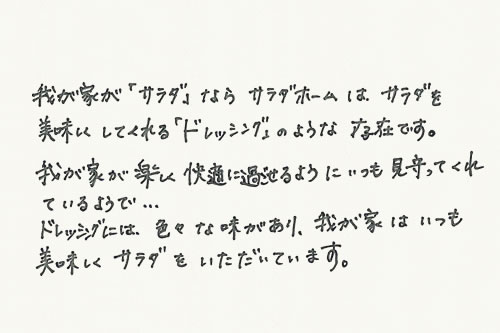 我が家が「サラダ」なら サラダホームは サラダを
美味しくしてくれる「ドレッシング」のような 存在です。
我が家が楽しく 快適に過ごせるように いつも 見守ってくれ
ているようで…
ドレッシングには、色々な味があり、我が家は いつも
美味しく サラダを いただいています。